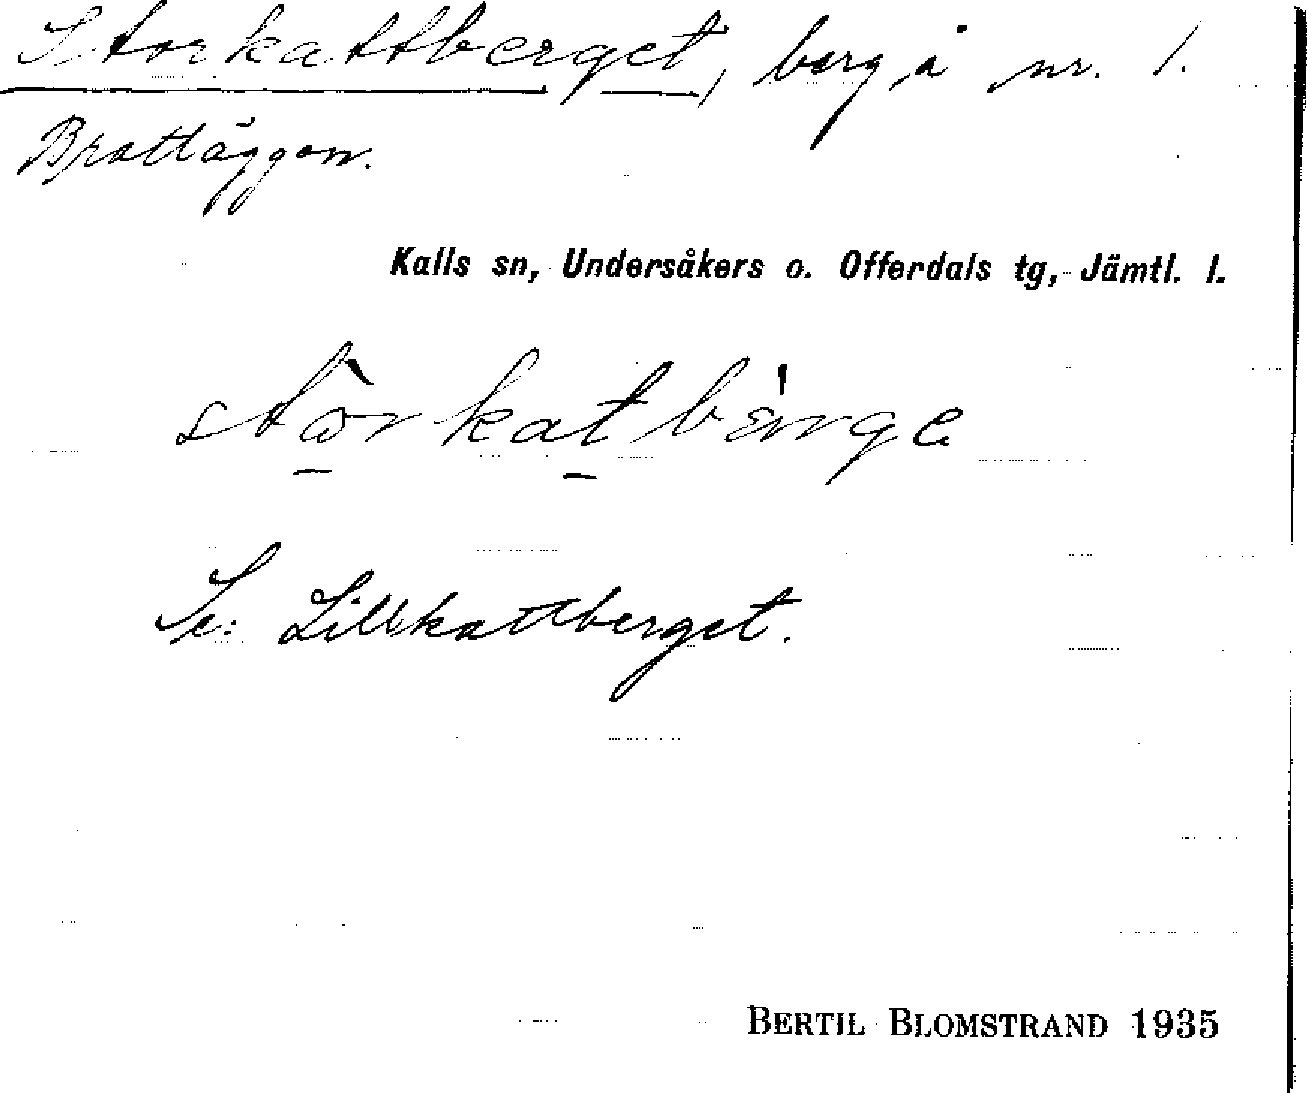 Storkattberget, berg å nr. 1.
Brattäggen.
Kalls sn, Undersåkers o. Offerdals tg, Jämtl. l.
störkatbärge
Se: Lillkattberget.
BERTIL BLOMSTRAND 1935